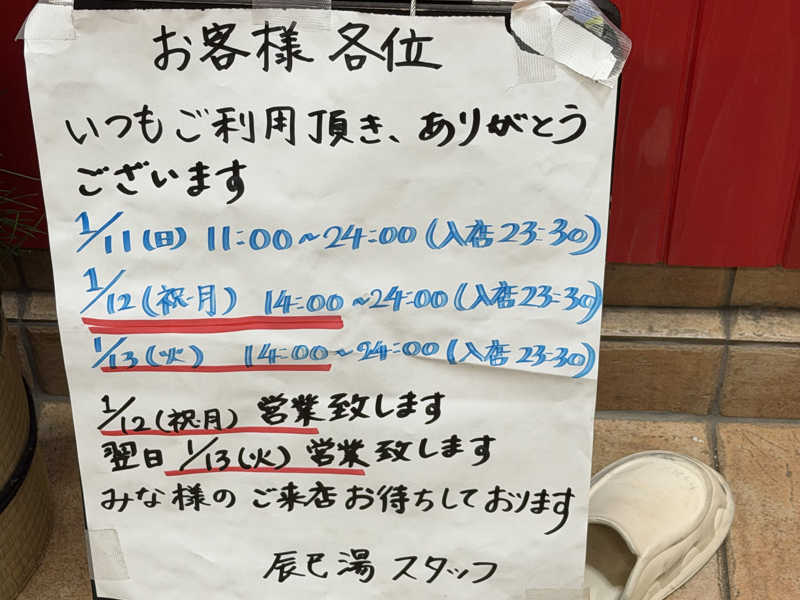 お客様 各位
いつもご利用頂き、ありがとう
ございます
1/11(日) 11:00~24:00(入店23:30)
1/12(祝・月) 14:00~24:00(入店23:30)
1/13(火) 14:00~24:00(入店23:30)
1/12(祝・月) 営業致します
翌日 1/13(火) 営業致します
みな様のご来店お待ちしております
辰巳湯 スタッフ